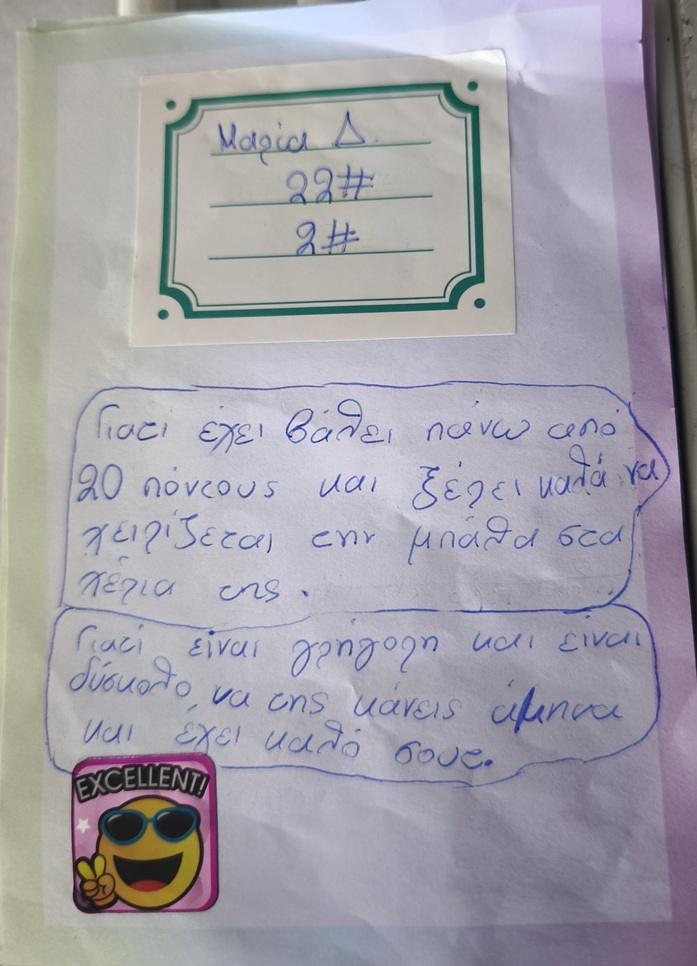 Μαρία Δ.
22#
2#
Γιατί έχει βάλει πάνω από
20 πόντους και ξέρει καλά να
χειρίζεται την μπάλα στα
χέρια της.
Γιατί είναι γρήγορη και είναι
δύσκολο να της κάνεις άμηνα
και έχει καλό σουτ.
EXCELLENT!